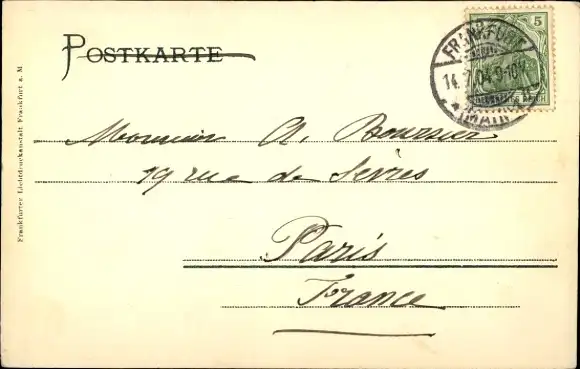 POSTKARTE
5
FRANKFURT
14. 04. 9-10V.
(MAIN)
Monsieur A. Boursier
19 rue de Sèvres
Paris
France
Frankfurter Lichtdruckanstalt Frankfurt a. M